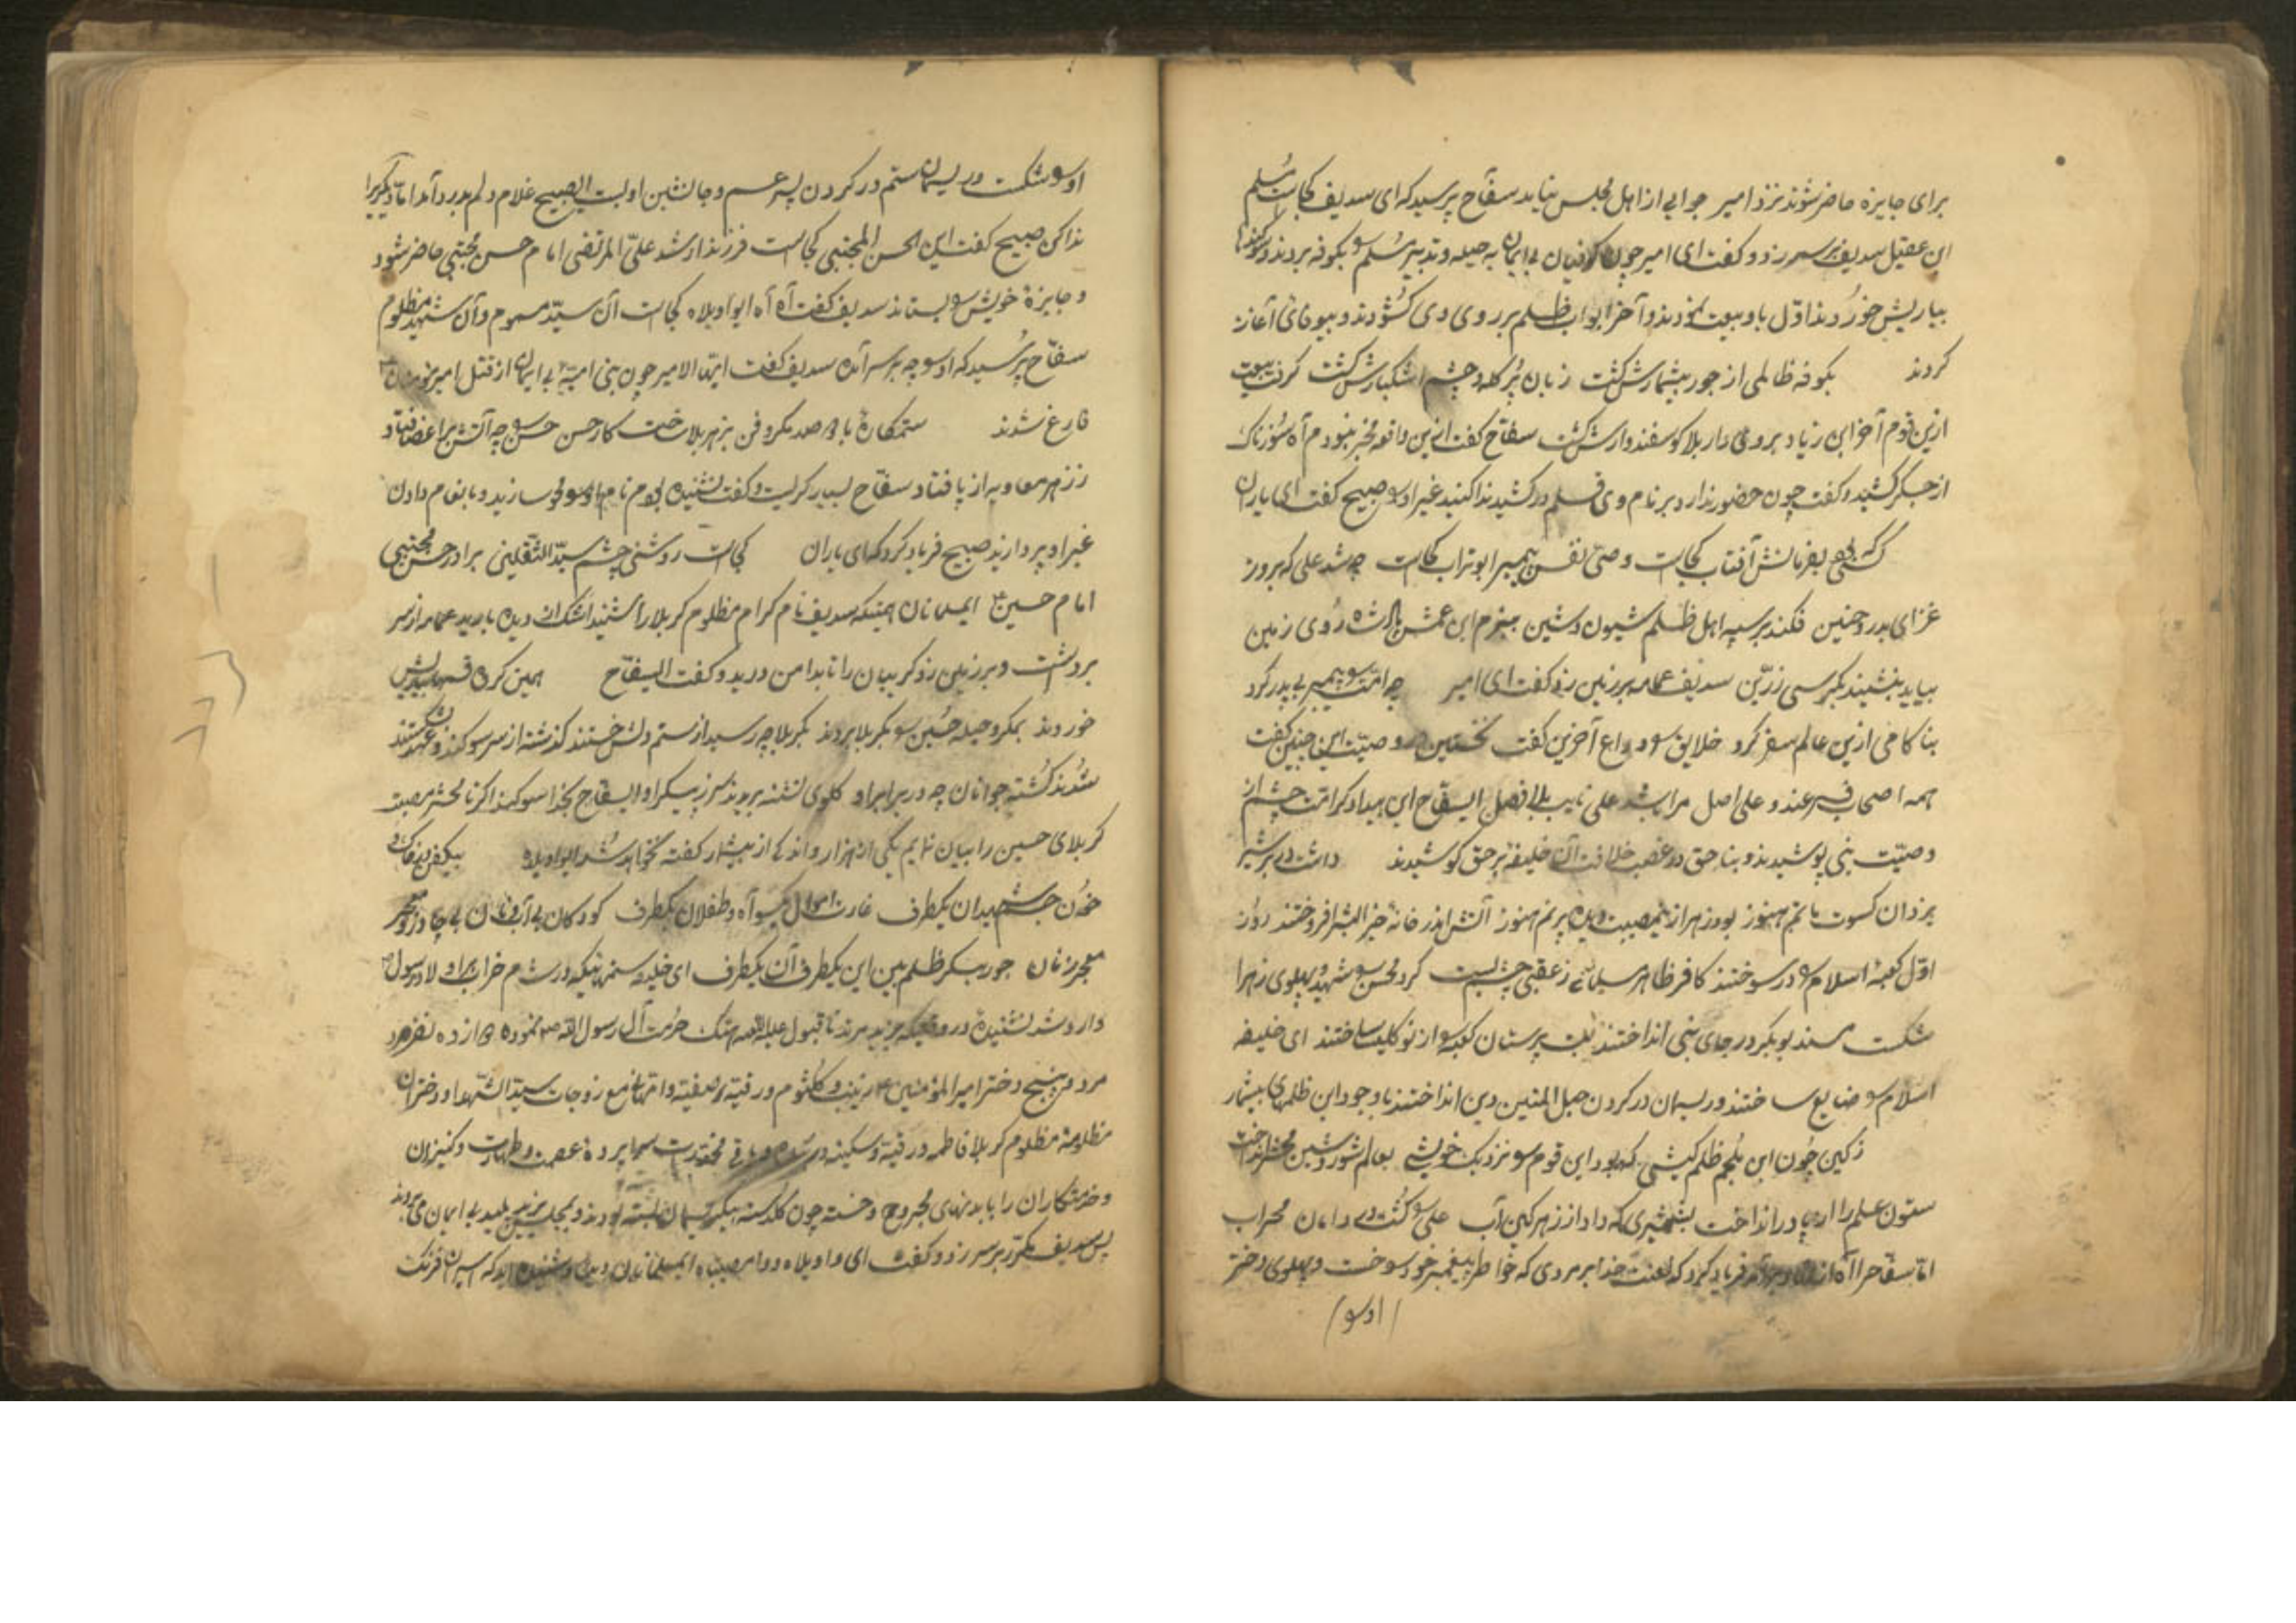 برای جایزه حاضر شوند نزد امیر جوابی از اهل مجلس نیامد سفّاح پرسید که ای سدیف کجاست مُسلم
ابن عقیل سدیف بر سر زد و گفت ای امیر چون کوفیان بی ایمان به حیله و تدبیر مُسلم را بکوفه بردند و سوکندها
بیاریش خوردند اوّل باو بیعت نمودند و آخر ابواب ظلم بر روی وی کشودند و بیوفائی آغاز
کردند بکوفه ظالمی از جور بیشمارش کشت زبان پُر کله و چشم اشکبارش کشت کرفت بیعت
ازین قوم آخر ابن زیاد بروی دار بلا کوسفندوارش کشت سفّاح کفت ازین واقعه مخبر نبودم آه سُوزناک
از جکر کشید و کفت چون حضور ندارد بر نام وی قلم درکشید ندا کنید غیر او را صبیح کفت ای یاران
که بفرمانش آفتاب کجاست وصیّ نفس پیمبر ابوتراب کجاست چه شد علی که بروز
غزای بدر و حنین فکند بر سپه اهل ظلم شیون و شین ابن عمّش روی زمین
بیاید بنشیند بکرسی زرّین سدیف عمامه بر زمین زد کفت ای امیر چه امّت را پیمبر بی پدر کرد
بناکامی ازین عالم سفر کرد خلایق را وداع آخرین کفت نخستین وصیّت این چنین کفت
همه اصحاب فرعند و علی اصل مرا باشد علی نایب بلافصل ایسفّاح این بیداد کر امّت چشم از
وصیّت نبی پوشیدند و بناحق در غصب خلافت آن خلیفه بر حق کوشیدند داشت در بر شیر
یزدان کسوت ماتم هنوز بود زهرا از مصیبت دیده پرنم هنوز آتش اندر خانهٔ خیرالبشر افروختند روز
اوّل کعبهٔ اسلام را در سوختند کافر ظاهر مسلمانی ز عقبی چشم بست کرد محسن را شهید و پهلوی زهرا
شکست مسند بوبکر در جای نبی انداختند بت پرستان کعبه را از نو کلیسا ساختند ای خلیفه
اسلام را ضایع ساختند و ریسمان در کردن حبل المتین دین انداختند با وجود این ظلمهای بیشمار
ز کین چون ابن مُلجم ظلم کیشی که بود این قوم را نزدیک خویشی بعالم شور و شین محشر انداخت
ستون علم را از پا در انداخت بشمشیری که داد از زهر کین آب علی را کشت در دامان محراب
امّا سفّاح را آه از نهاد برآمد فریاد کرد که لعنت خدا بر مردی که خاطر پیغمبر خود سوخت و پهلوی دختر
او را
او را شکست و ریسمان ستم در کردن پسر عم و جانشین او بست ایصبیح غلام دلم بدرد آمد امّا دیکر را
ندا کن صبیح کفت این الحسن المجتبی کجاست فرزند ارشد علیّ المرتضی امام حسن مجتبی حاضر شود
و جایزهٔ خویش را بستاند سدیف کفت آه آه ایواویلاه کجاست آن سیّد مسموم و آن شهید مظلوم
سفّاح پرسید که او را چه بر سر آمد سدیف کفت ایّها الامیر چون بنی امیّه بی ایمان از قتل امیر مؤمنان
فارغ شدند ستمکاره با صد مکر و فن بزهر بلا ساخت کار حسن حسن را چه آتش بر اعضا فتاد
ز زهر معاویه از پا فتاد سفّاح بسیار کریست و کفت نشنیده بودم نام او را محو سازید و بانعام دادن
غیر او پردازید صبیح فریاد کرد که ای یاران کجاست روشنی چشم سیّد الثّقلین برادر حسن مجتبی
امام حسین ایمسلمانان همینکه سدیف نام کرام مظلوم کربلا را شنید اشک از دیده بارید عمامه از سر
برداشت و بر زمین زد کریبان را تا بدامن درید و کفت ایسفّاح همین کروه قسمها بسیدش
خوردند بمکر و حیله حُسین را بکربلا بردند بکربلا چه رسید از ستم دلش خستند کذشته از سر سوکند و عهد بشکستند
شدند کشته جوانان چه در برابر او کلوی تشنه بریدند سر ز پیکر او ایسفّاح بخدا سوکند اکر تا محشر مصیبت
کربلای حسین را بیان نمایم یکی از هزار و اندکی از بیشمار کفته نخواهد شد ایواویلاه
شهیدان یکطرف غارت اموال یکسو آه و طفلان یکطرف کودکان بی آب و نان بی چادر و معجر
معجر زنان جور بنکر ظلم بین این یکطرف آن یکطرف ای خلیفه ستمهائیکه در شام خراب بر اولاد رسول
وارد شد نشنیدهٔ در وقتیکه یزید مرتد ناقبول علیه اللعنه هتک حرمت آل رسول اللّه نموده دوازده نفر مرد
مرد و پنج دختر امیر المؤمنین زینب و کلثوم و رقیّه و صفیّه و امّهانی مع زوجات سیّد الشّهدا و دختران
مظلومهٔ مظلوم کربلا فاطمه و رقیّه و سکینه و باقی مخدّرات سراپردهٔ عصمت و طهارت و کنیزان
و خدمتکاران را با بدنهای مجروح و خسته چون کلدسته بیک ریسمان بسته بودند و بمجلس یزید پلید بی ایمان می بردند
پس سدیف مکرّر بر سر زد و کفت ای واویلاه و وا مصیبتاه ایمسلمانان دیده و شنیده اید که اسیران فرنک